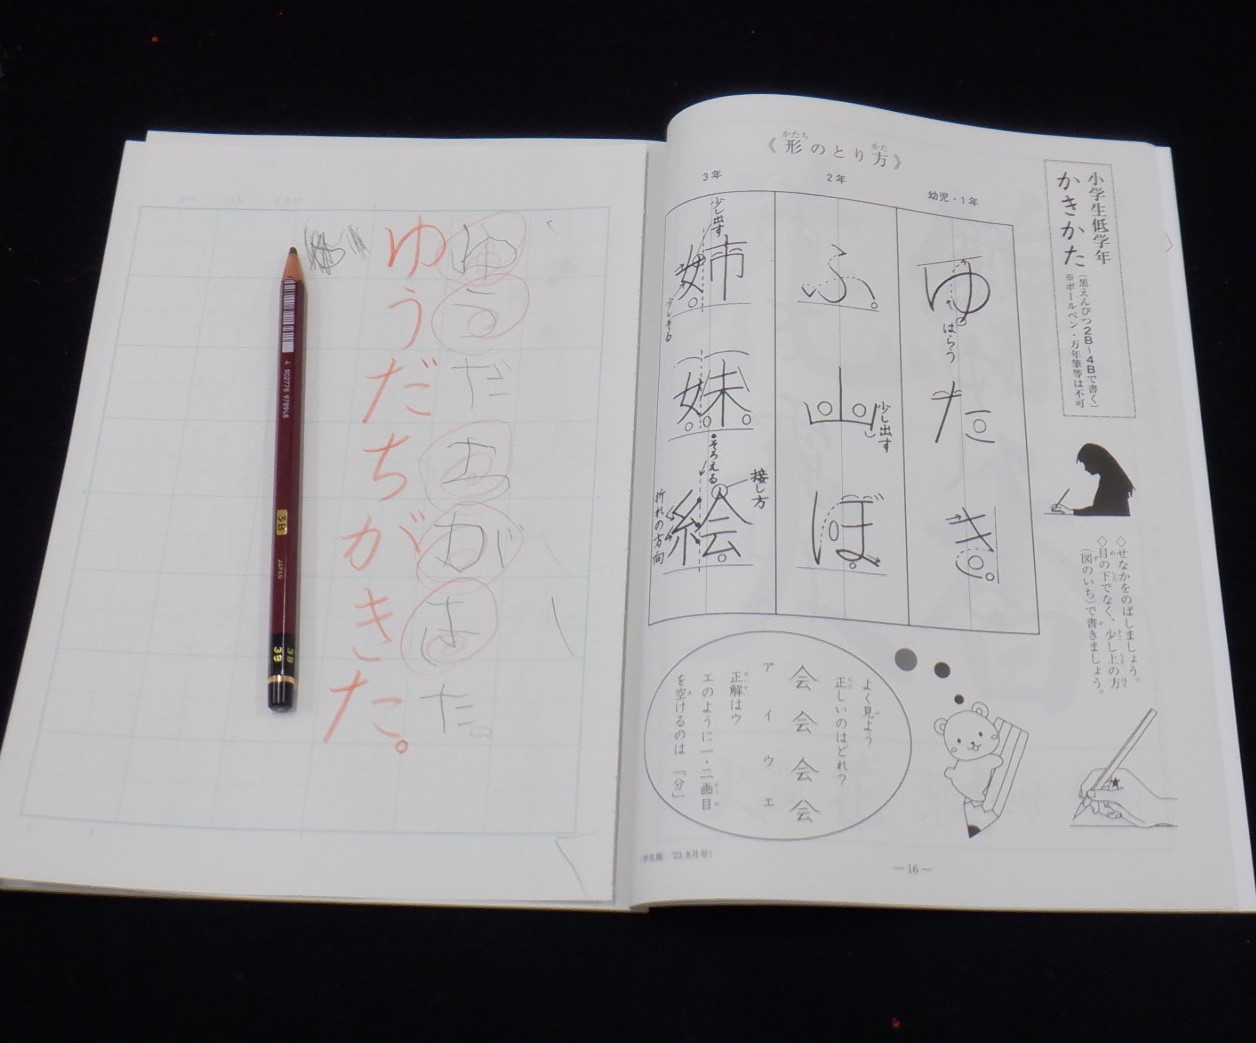 《形のとり方》
かたち
かた
小学生低学年
かきかた
(黒えんぴつ2B～4Bで書く)
※ボールペン・万年筆等は不可
幼児・1年
ゆ
はらう
た
き
2年
ふ
山
少し出す
ぼ
3年
姉
少し出す
少しそる
妹
そろえる
絵
接し方
折れの方向
◇せなかをのばしましょう。
◇目の下でなく、少し上の方
(図のいち)で書きましょう。
よく見よう
正しいのはどれ?
会 会 会 会
ア イ ウ エ
正解はウ
エのように一・二画目
を空けるのは「分」
'23.8月号)
—16—
ゆうだちがきた。
ゆうだちがきた。
4 902778 978948
3B
JAPAN
3B
3B